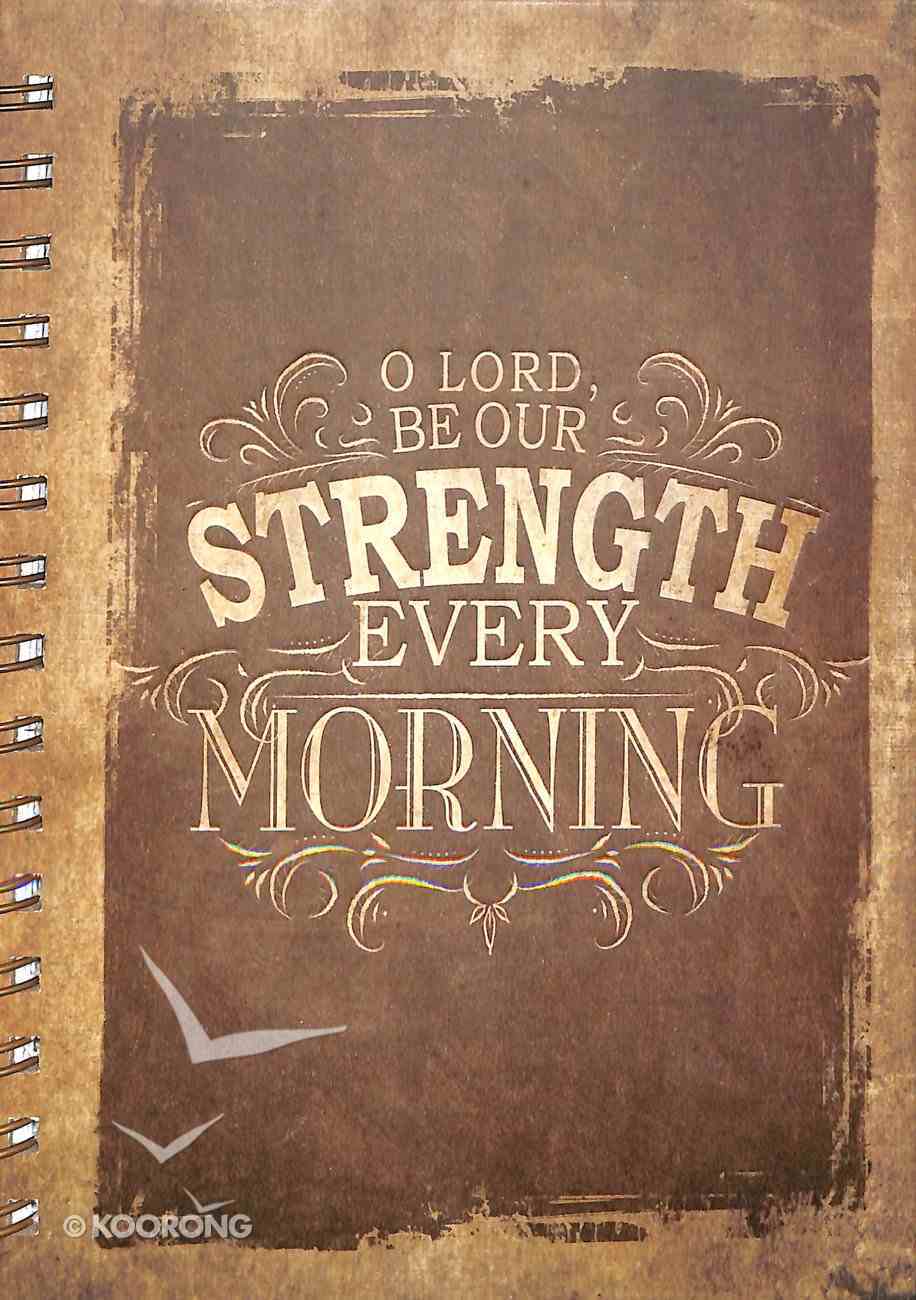 O LORD,
BE OUR
STRENGTH
EVERY
MORNING
© KOORONG